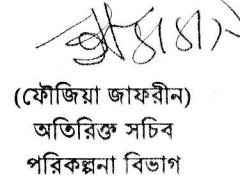 (ফৌজিয়া জাফরীন)
অতিরিক্ত সচিব
পরিকল্পনা বিভাগ